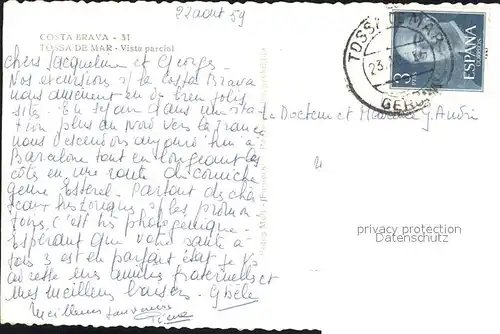 22 aout 59
COSTA BRAVA - 31
TOSSA DE MAR - Vista parcial
Chers Jacqueline et Georges
Nos excursions s/ la Costa Brava
nous amènent en de bien jolis
sites. En séjour dans une sta
tion plus au Nord vers la France
nous descendons aujourd'hui à
Barcelone tout en longeant les
côtes en une route de corniche
genre Esterel. Partout des châ
teaux historiques s/ les promon
toires, c'est très photogénique.
Espérant que votre santé à
tous 3 est en parfait état je vs
adresse mes amitiés fraternelles et
mes meilleurs baisers. Gisèle
Meilleurs souvenirs
Le Docteur et Madame G. André
TOSSA DE MAR
23.
GERONA
3
PTAS
ESPAÑA
CORREOS
privacy protection
Datenschutz